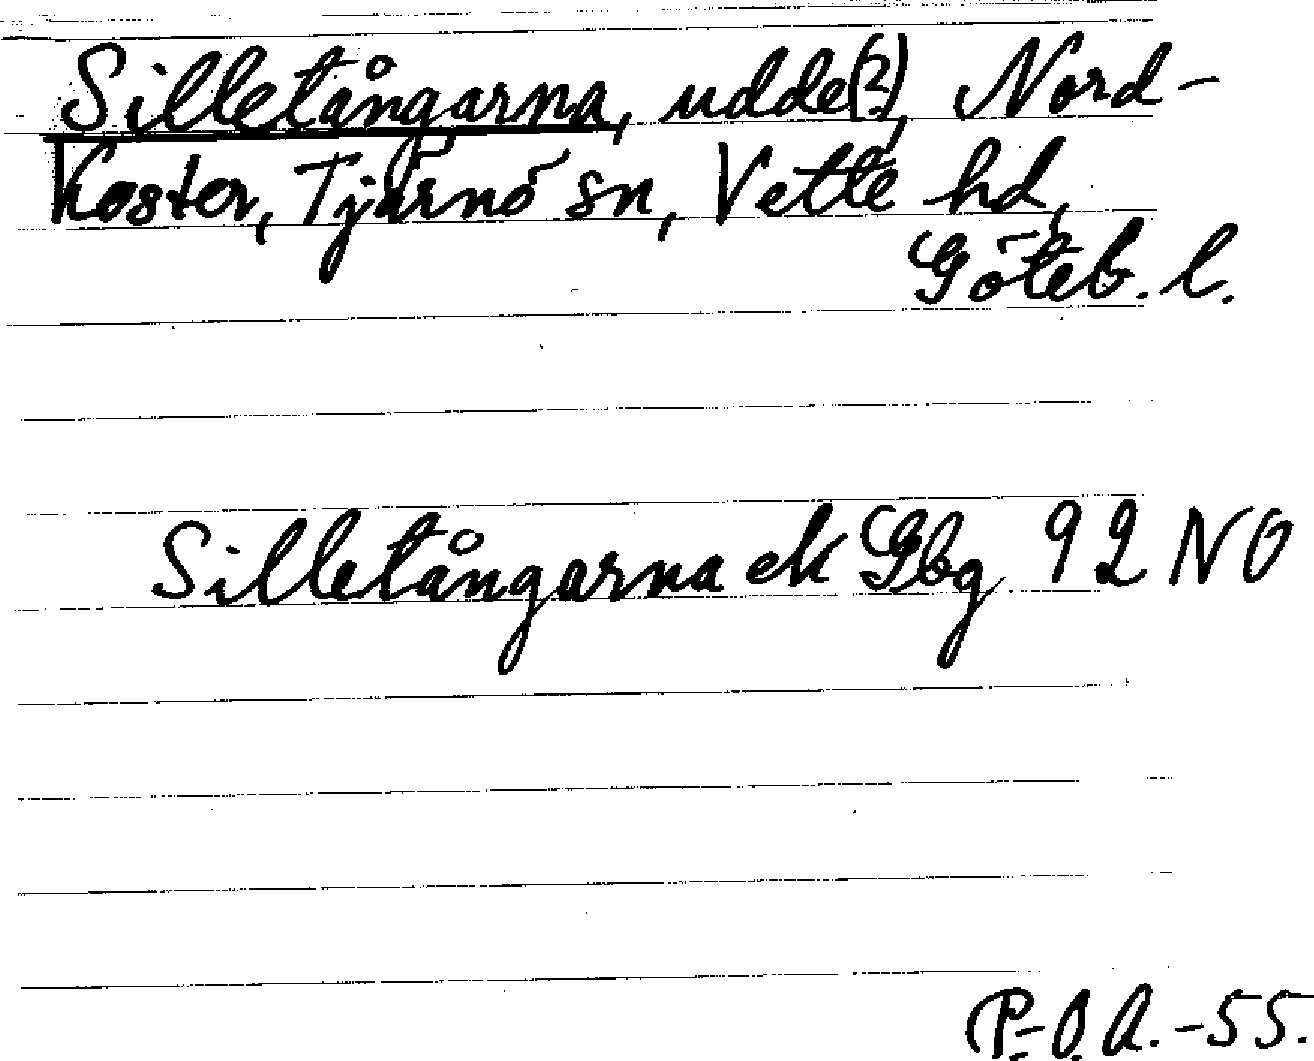 Silletångarna, udde(?), Nord-
Koster, Tjärnö sn, Vette hd,
Göteb. l.
Silletångarna ek Gbg 92 NO
P-O.A.-55.